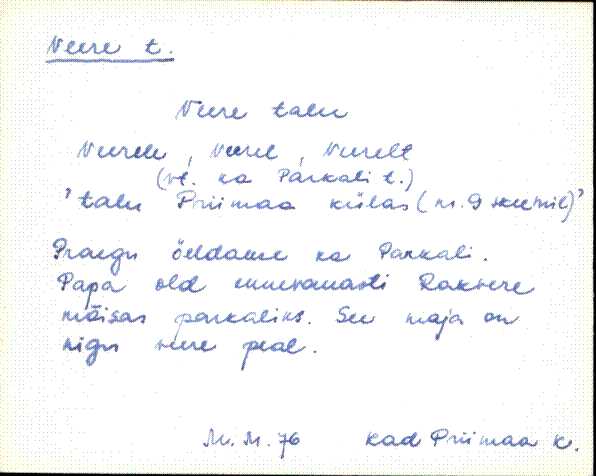 Veere t.
Veere talu
Veerele, Veerel, Veerelt
(vt. ka Parkali t.)
'talu Priimaa külas (nr. 9 skeemil)'
Praegu öeldakse ka Parkali.
Papa old ennevanasti Rakvere
mõisas parkaliks. See maja on
nigu veere peal.
M. M. 76 Kad Priimaa k.